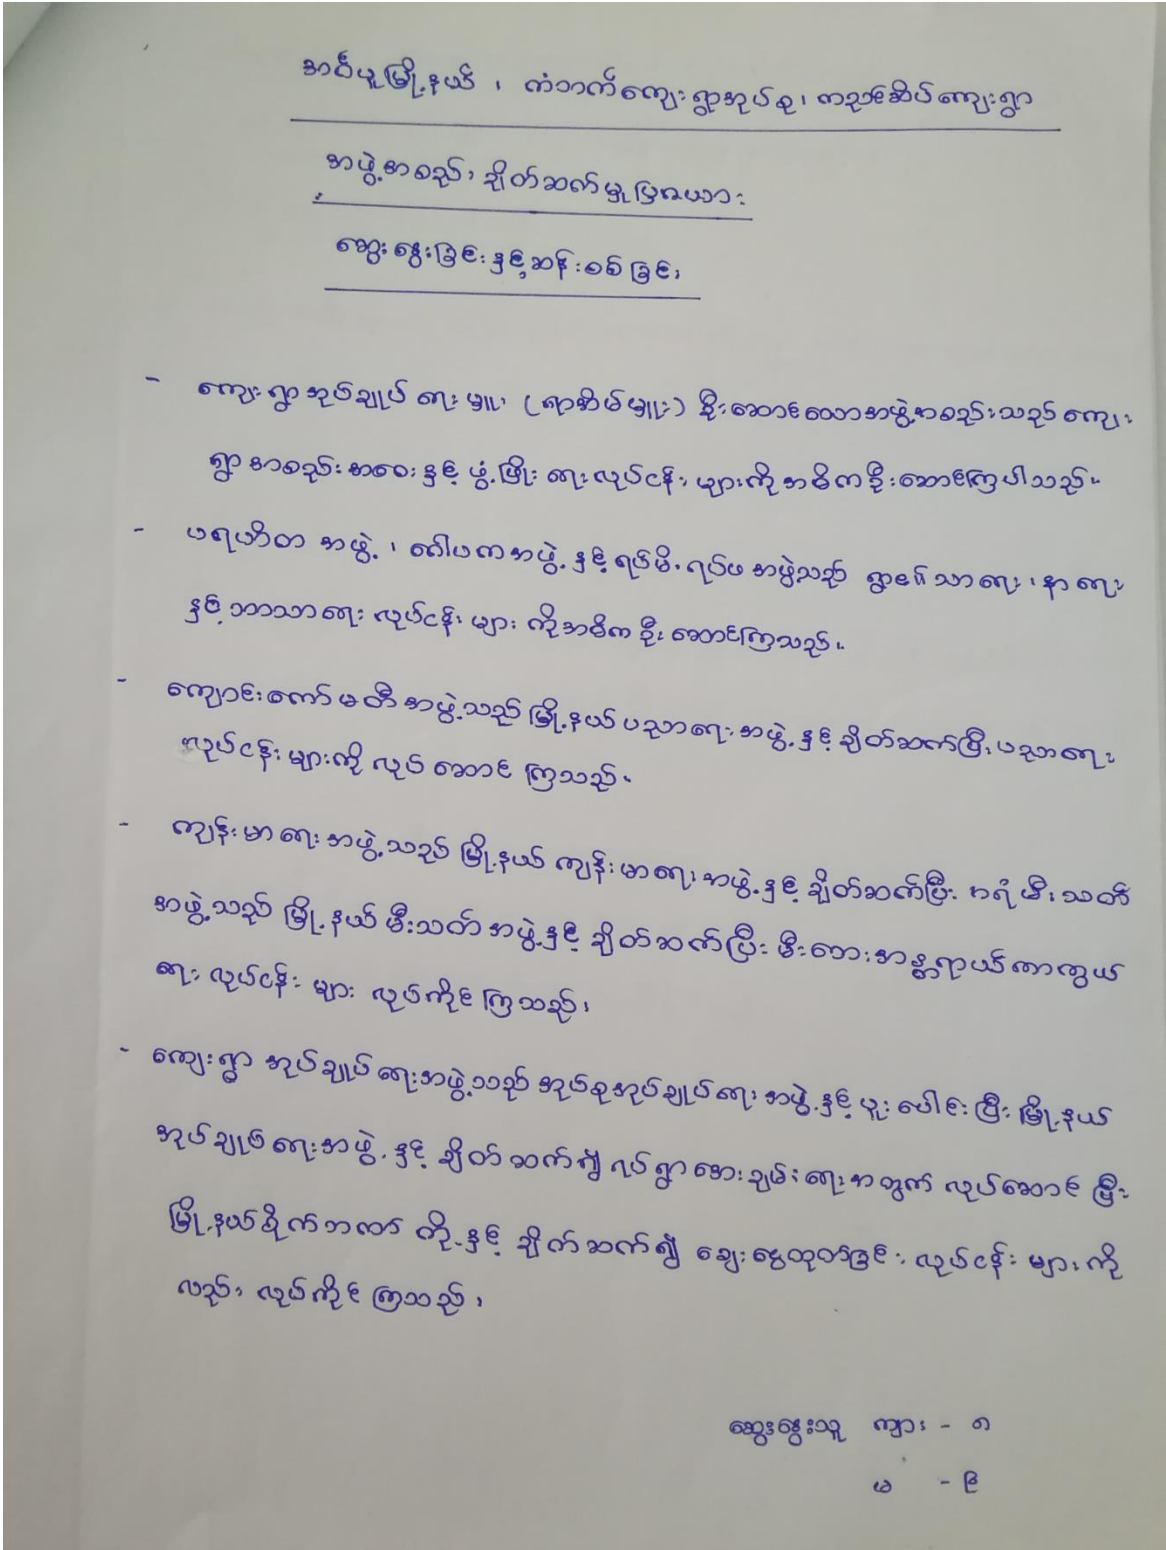 အင်္ဂပူမြို့နယ် ၊ ကံဘက်ကျေးရွာအုပ်စု၊ ကညင်ဆိပ်ကျေးရွာ
အဖွဲ့အစည်း ချိတ်ဆက်မှုပြဇယား
ဆွေးနွေးခြင်းနှင့်ဆန်းစစ်ခြင်း
- ကျေးရွာအုပ်ချုပ်ရေးမှူး (ရာအိမ်မှူး) ဦးဆောင်သောအဖွဲ့အစည်းသည် ကျေး
ရွာအစည်းအဝေးနှင့် ဖွံ့ဖြိုးရေးလုပ်ငန်းများကိုအဓိကဦးဆောင်ကြပါသည်။
- ပရဟိတ အဖွဲ့ ၊ ဂေါပကအဖွဲ့နှင့်ရပ်မိ၊ရပ်ဖအဖွဲ့သည် ရွာ၏သာရေး၊နာရေး
နှင့်ဘာသာရေးလုပ်ငန်းများကိုအဓိကဦးဆောင်ကြသည်။
- ကျောင်းကော်မတီအဖွဲ့သည်မြို့နယ်ပညာရေးအဖွဲ့နှင့်ချိတ်ဆက်ပြီးပညာရေး
လုပ်ငန်းများကိုလုပ်ဆောင်ကြသည်။
- ကျန်းမာရေးအဖွဲ့သည်မြို့နယ်ကျန်းမာရေးအဖွဲ့နှင့်ချိတ်ဆက်ပြီး အရံမီးသတ်
အဖွဲ့သည်မြို့နယ်မီးသတ်အဖွဲ့နှင့်ချိတ်ဆက်ပြီးမီးဘေးအန္တရာယ်ကာကွယ်
ရေးလုပ်ငန်းများလုပ်ကိုင်ကြသည်။
- ကျေးရွာအုပ်ချုပ်ရေးအဖွဲ့သည်အုပ်စုအုပ်ချုပ်ရေးအဖွဲ့နှင့်ပူးပေါင်းပြီးမြို့နယ်
အုပ်ချုပ်ရေးအဖွဲ့နှင့်ချိတ်ဆက်၍ရပ်ရွာအေးချမ်းရေးအတွက်လုပ်ဆောင်ပြီး
မြို့နယ်စိုက်ဘဏ်တို့နှင့်ချိတ်ဆက်၍ချေးငွေထုတ်ခြင်းလုပ်ငန်းများကို
လည်းလုပ်ကိုင်ကြသည်။
ဆွေးနွေးသူ ကျား - ၈
မ - ၉